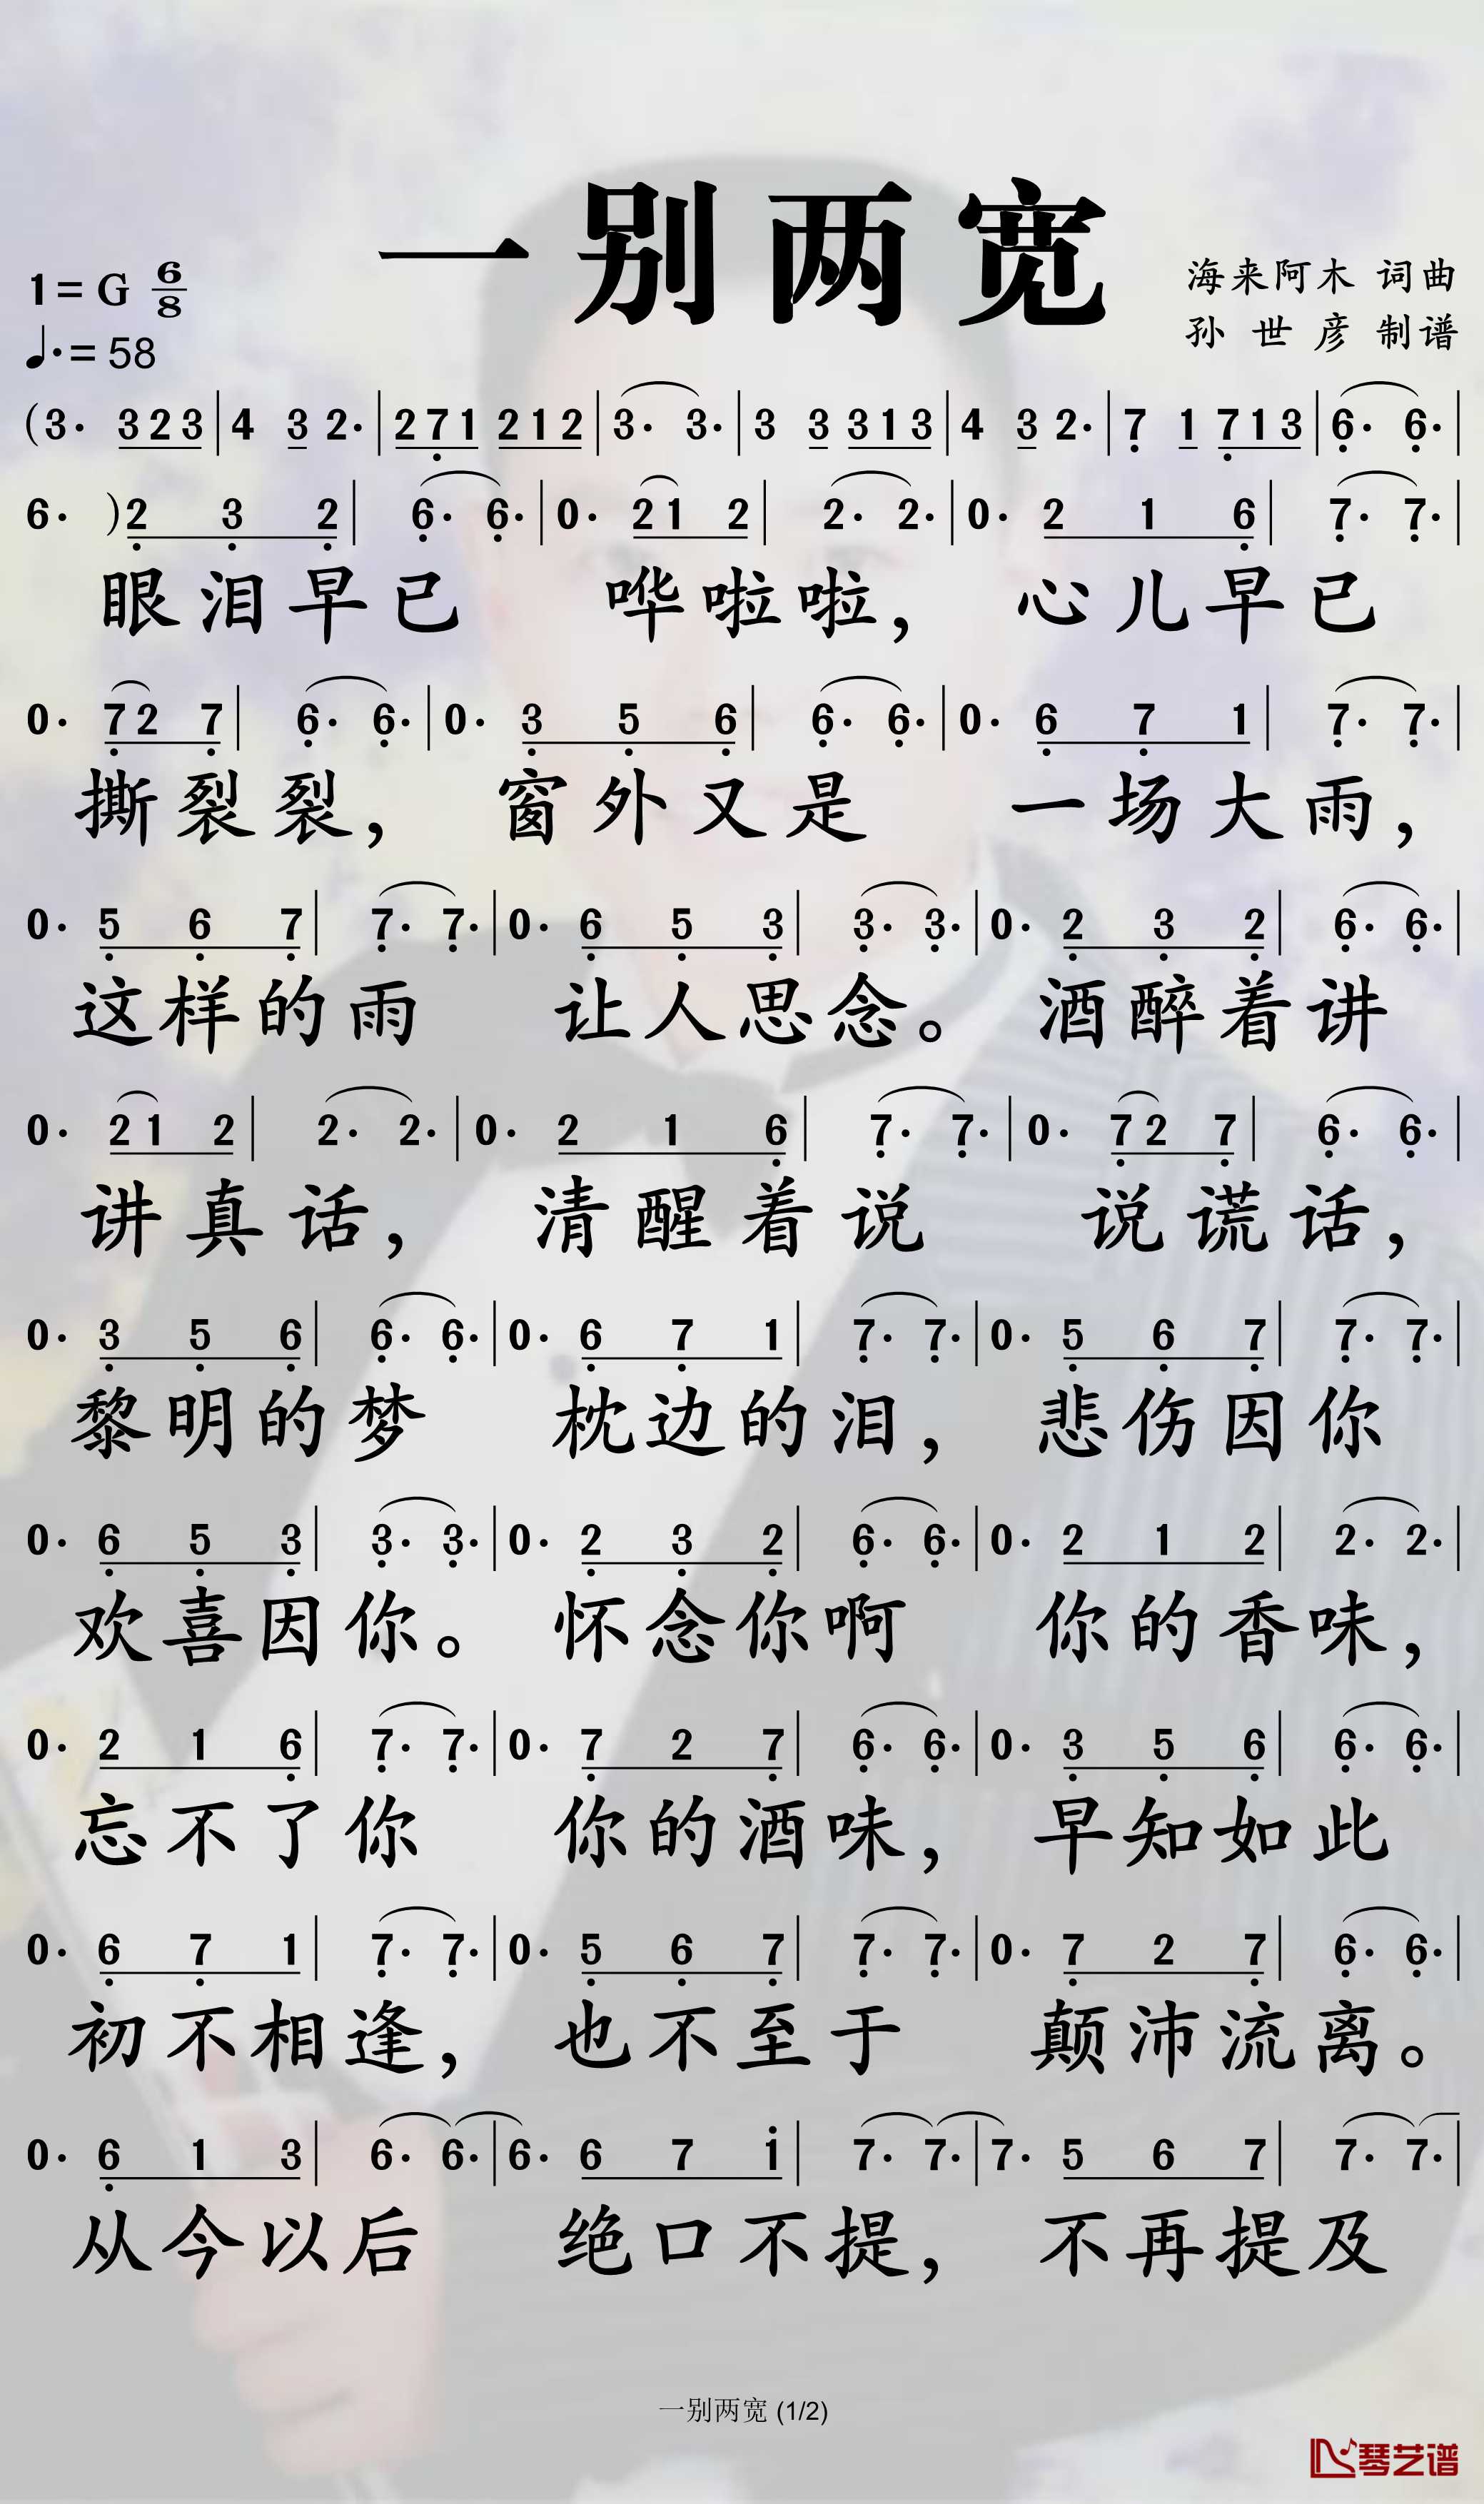 一别两宽
1=G 6/8
海来阿木 词曲
♩.=58
孙世彦 制谱
(3· 323|4 3 2·|271 212|3· 3·|3 3 313|4 3 2·|7 1 713|6· 6·|
6· )2 3 2|6· 6·|0· 21 2|2· 2·|0· 2 1 6|7· 7·|
眼泪早已 哗啦啦, 心儿早已
0· 72 7|6· 6·|0· 3 5 6|6· 6·|0· 6 7 1|7· 7·|
撕裂裂, 窗外又是 一场大雨,
0· 5 6 7|7· 7·|0· 6 5 3|3· 3·|0· 2 3 2|6· 6·|
这样的雨 让人思念。 酒醉着讲
0· 21 2|2· 2·|0· 2 1 6|7· 7·|0· 72 7|6· 6·|
讲真话, 清醒着说 说谎话,
0· 3 5 6|6· 6·|0· 6 7 1|7· 7·|0· 5 6 7|7· 7·|
黎明的梦 枕边的泪, 悲伤因你
0· 6 5 3|3· 3·|0· 2 3 2|6· 6·|0· 2 1 2|2· 2·|
欢喜因你。 怀念你啊 你的香味,
0· 2 1 6|7· 7·|0· 7 2 7|6· 6·|0· 3 5 6|6· 6·|
忘不了你 你的酒味, 早知如此
0· 6 7 1|7· 7·|0· 5 6 7|7· 7·|0· 7 2 7|6· 6·|
初不相逢, 也不至于 颠沛流离。
0· 6 1 3|6· 6·|6· 6 7 i|7· 7·|7· 5 6 7|7· 7·|
从今以后 绝口不提, 不再提及
一别两宽 (1/2)
琴艺谱